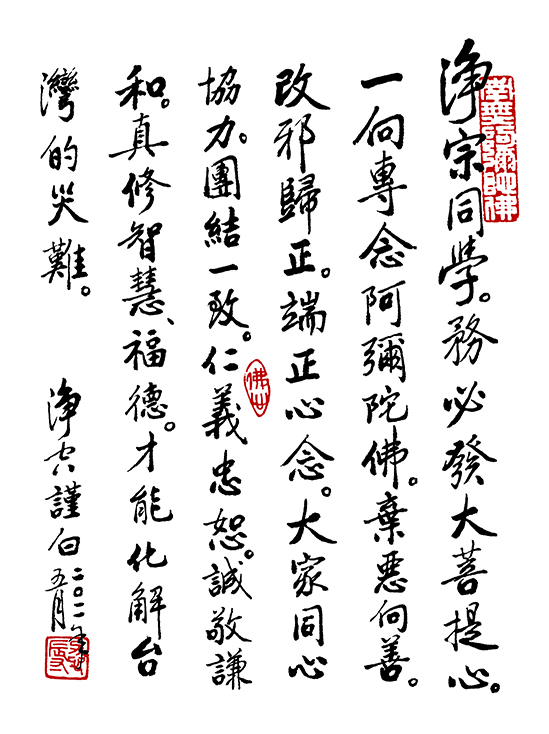 淨宗同學。務必發大菩提心。
一向專念阿彌陀佛。棄惡向善。
改邪歸正。端正心念。大家同心
協力。團結一致。仁義忠恕。誠敬謙
和。真修智慧、福德。才能化解台
灣的災難。
淨空謹白
二〇一一年
五月
南無阿彌陀佛